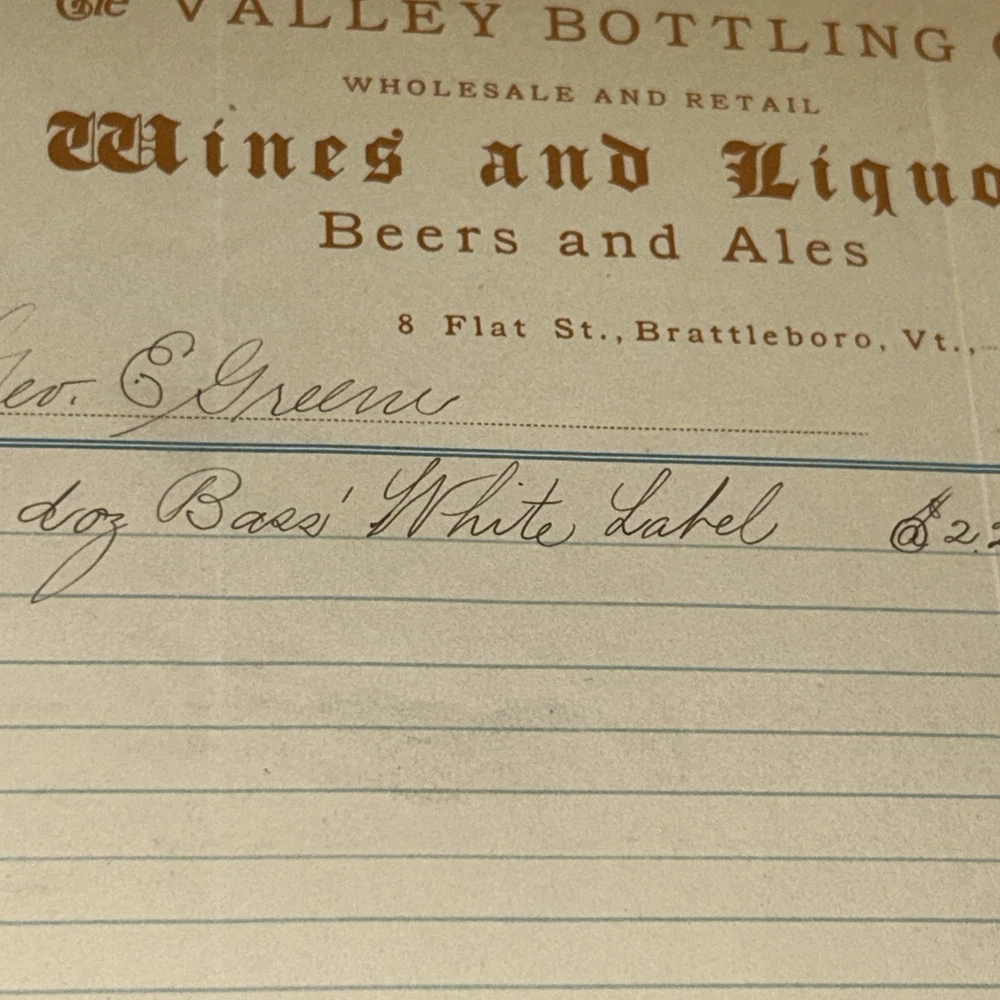 The VALLEY BOTTLING
WHOLESALE AND RETAIL
Wines and Liquo
Beers and Ales
8 Flat St., Brattleboro, Vt.,
Geo. E Greene
doz Bass' White Label @ $2.2